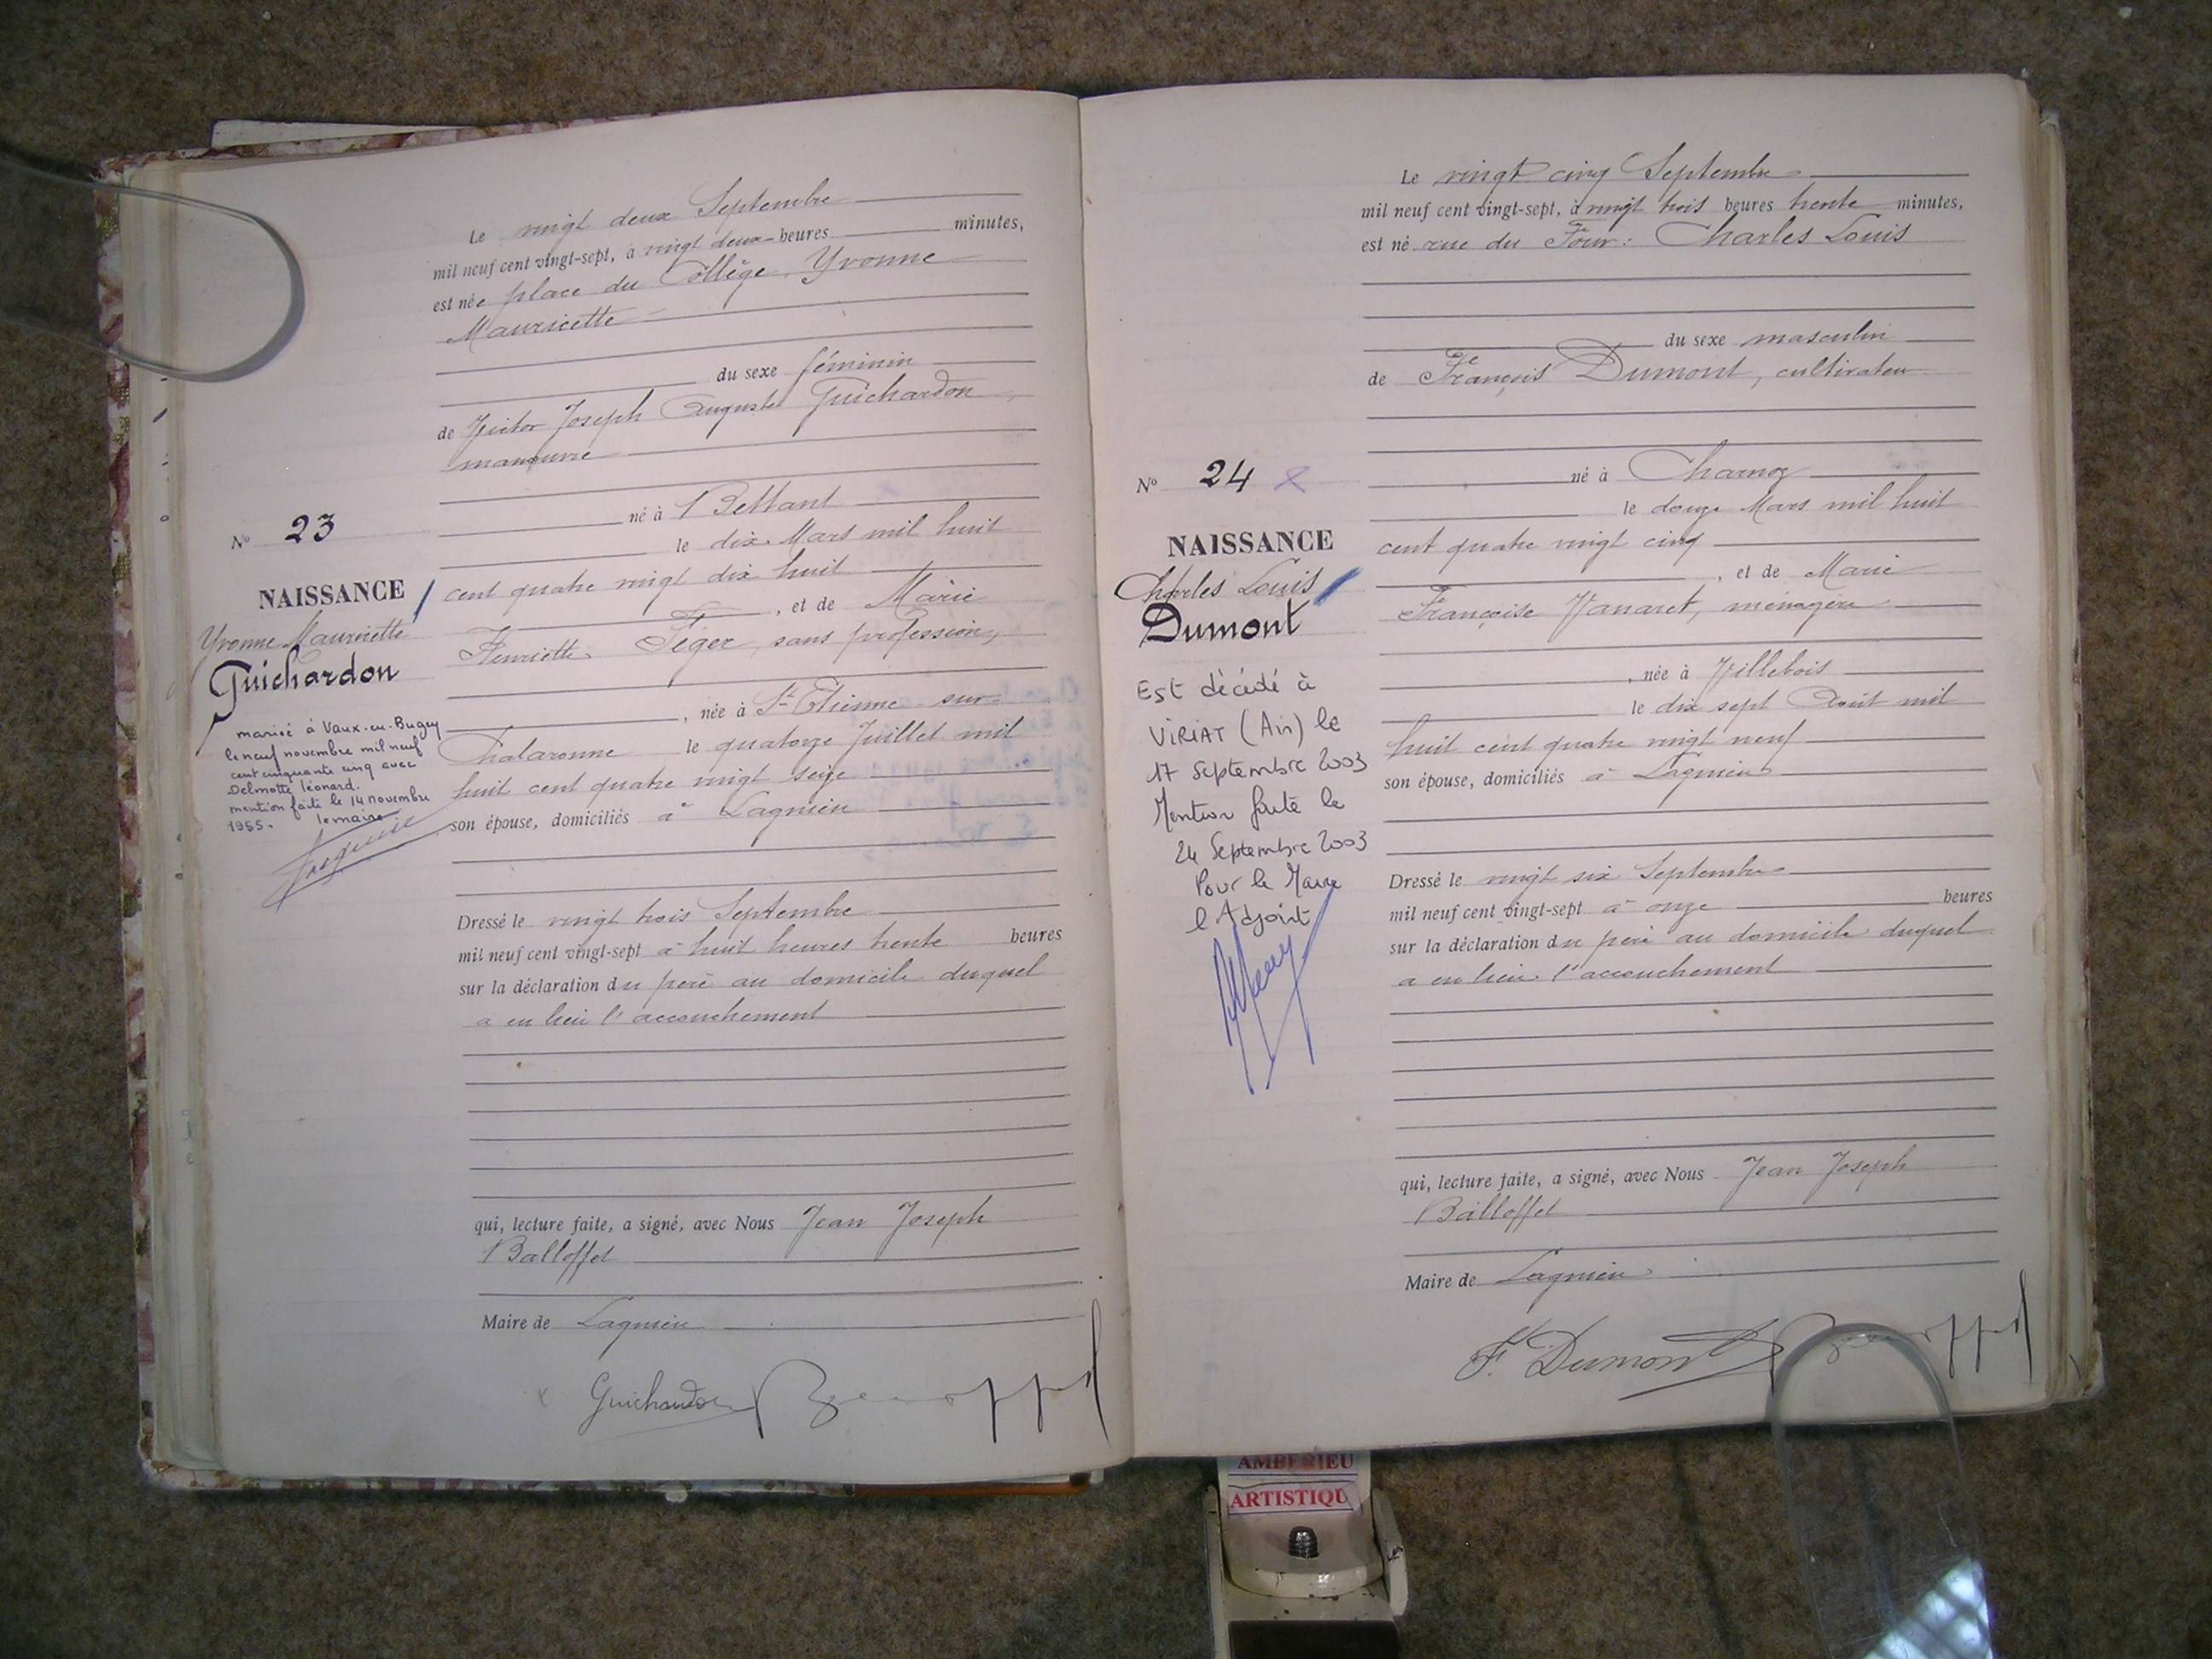 N° 23
NAISSANCE
Yvonne Mauricette
Guichardon
mariée à Vaux-en-Bugey
le neuf novembre mil neuf
cent cinquante cinq avec
Delmotte léonard.
mention faite le 14 novembre
1955. le maire
Le vingt deux Septembre
mil neuf cent vingt-sept, à vingt deux heures minutes,
est née place du Collège, Yvonne
Mauricette
du sexe féminin
de Victor Joseph Auguste Guichardon
manœuvre
né à Bettant
le dix Mars mil huit
cent quatre vingt dix huit
, et de Marie
Henriette Seger, sans profession,
, née à St Etienne sur
Chalaronne le quatorze Juillet mil
huit cent quatre vingt seize
son épouse, domiciliés à Lagnieu
Dressé le vingt trois Septembre
mil neuf cent vingt-sept à huit heures trente heures
sur la déclaration du père au domicile duquel
a eu lieu l'accouchement
qui, lecture faite, a signé, avec Nous Jean Joseph
Balloffet
Maire de Lagnieu
Guichardon
N° 24
NAISSANCE
Charles Louis
Dumont
Est décédé à
VIRIAT (Ain) le
17 Septembre 2003
Mention faite le
24 Septembre 2003
Pour le Maire
l'Adjoint
Le vingt cinq Septembre
mil neuf cent vingt-sept, à vingt trois heures trente minutes,
est né rue du Four: Charles Louis
du sexe masculin
de François Dumont, cultivateur
né à Charnoz
le douze Mars mil huit
cent quatre vingt cinq
, et de Marie
Françoise Vanaret, ménagère
, née à Villebois
le dix sept Août mil
huit cent quatre vingt neuf
son épouse, domiciliés à Lagnieu
Dressé le vingt six Septembre
mil neuf cent vingt-sept à onze heures
sur la déclaration du père au domicile duquel
a eu lieu l'accouchement
qui, lecture faite, a signé, avec Nous Jean Joseph
Balloffet
Maire de Lagnieu
F. Dumont
AMBERIEU
ARTISTIQU